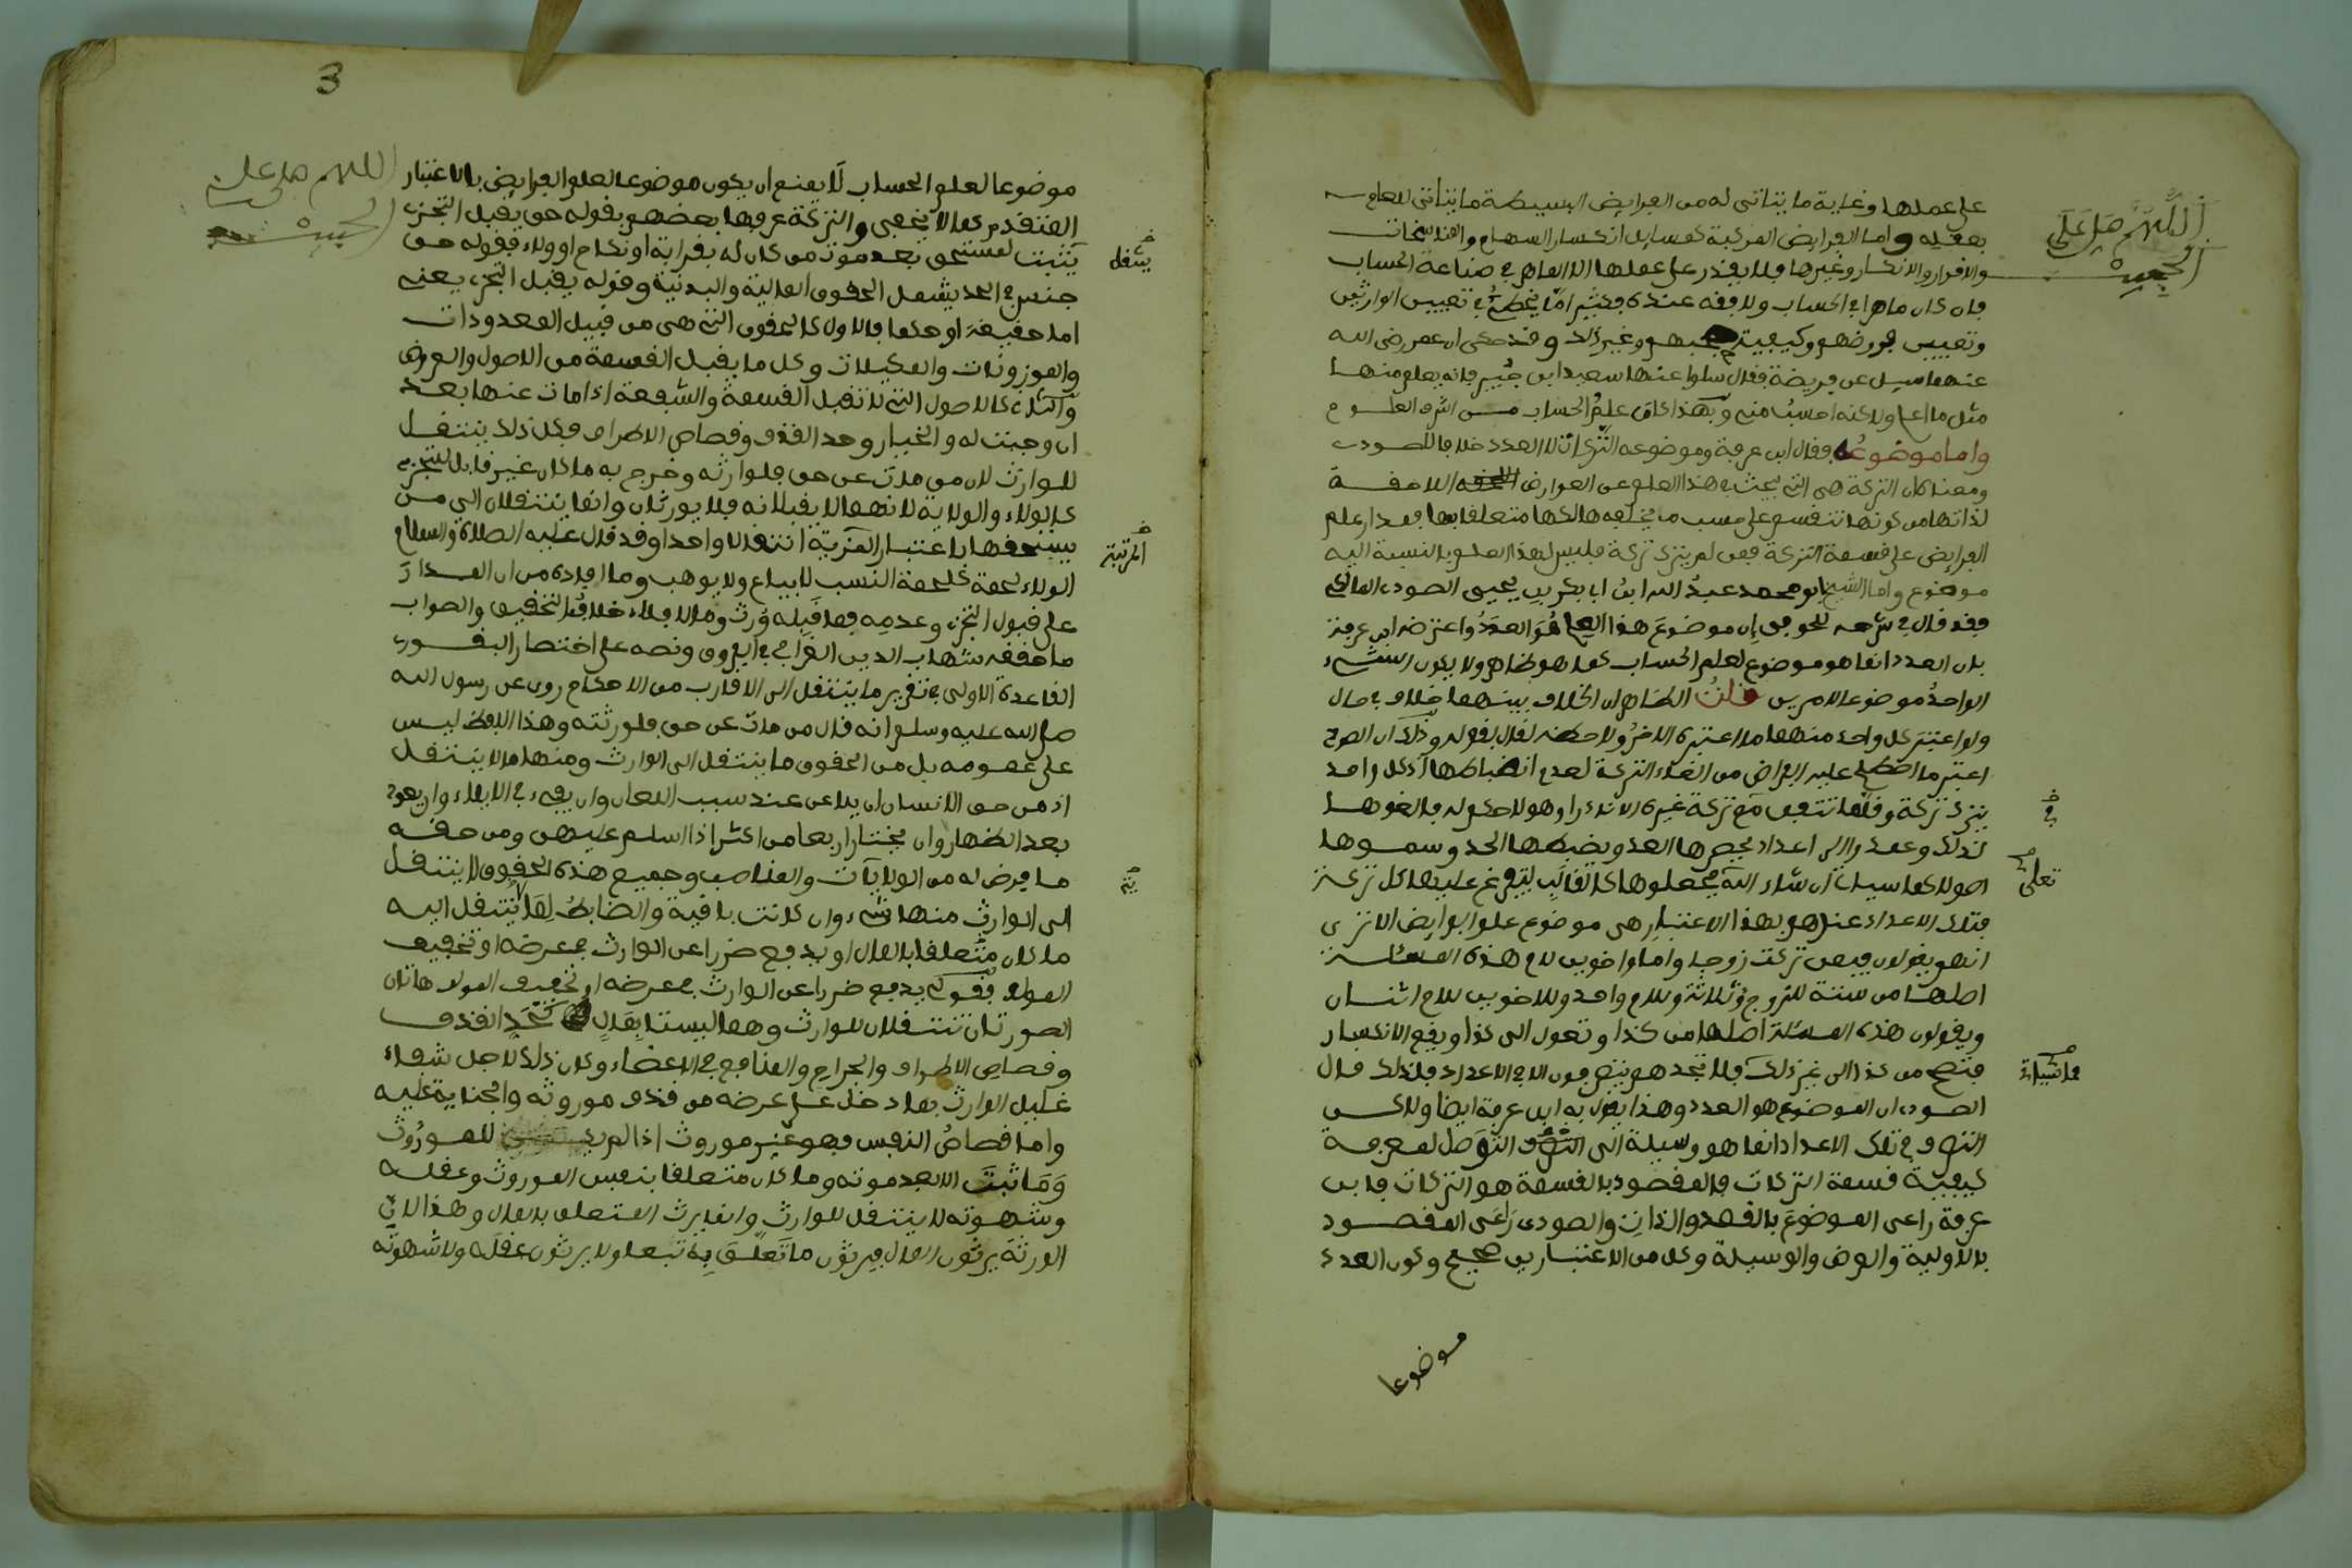 على عملها وغاية ما يتاتى له من الفرايض البسيطة ما يتاتى للعامي
بعقله واما الفرايض المركبة كمسايل انكسار السهام والمناسخات
والاقرار والانكار وغيرها فلا يقدر على عملها الا الماهر في صناعة الحساب
فان كان ماهرا في الحساب ولا فقه عنده فكثيرا ما يخطئ في تعيين الوارثين
وتعيين فروضهم وكيفية حجبهم وغير ذلك وقد حكى ان عمر رضي الله
عنهما سيل عن فريضة فقال سلوا عنها سعيد ابن جبير فانه يعلم منها
مثل ما اعلم ولاكنه احسب مني وبهذا كان علم الحساب من اشرف العلوم
واما موضوعه فقال ابن عرفة وموضوعه التركات لا العدد خلافا للصودي
ومعناه ان التركة هي التي يبحث في هذا العلم عن العوارض اللاحقة
لذاتها من كونها تنقسم على حسب ما يخلفه هالكها متعلقا بها فمدار علم
الفرايض على قسمة التركة فمن لم يترك تركة فليس لهذا العلم بالنسبة اليه
موضوع واما الشيخ ابو محمد عبد الله ابن ابي بكر بن يحيى الصودي المالكي
فقد قال في شرحه للحوفي ان موضوع هذا العلم هو العدد واعترضه ابن عرفة
بان العدد انما هو موضوع لعلم الحساب كما هو ظاهر ولا يكون الشيء
الواحد موضوعا لامرين قلت الظاهر ان الخلاف بينهما خلاف في حال
ولو اعتبر كل واحد منهما ما اعتبره الاخر ولاحظه لقال بقوله وذلك ان الصودي
اعتبر ما اصطلح عليه الفراض من الغاء التركة لعدم انضباطها اذ كل واحد
يترك تركة وقلما تتفق مع تركة غيره الا نادرا وهو لا حكم له فالغوها
لذلك وعمدوا الى اعداد يحصرها العد ويضبطها الحد وسموها
اصولا كما سياتي ان شاء الله يجعلوها كالقالب ليفرغ عليها كل تركة
فتلك الاعداد عندهم بهذا الاعتبار هي موضوع علم الفرايض الا ترى
انهم يقولون فيمن تركت زوجا واما واخوين لام هذه المسئلة
اصلها من ستة للزوج ثلاثة وللام واحد وللاخوين للام اثنان
ويقولون هذه المسئلة اصلها من كذا وتعول الى كذا ويقع الانكسار
فتصح من كذا الى غير ذلك فلا تجدهم يتصرفون الا في الاعداد فلذلك قال
الصودي ان الموضوع هو العدد وهذا يقول به ابن عرفة ايضا ولاكن
التصرف في تلك الاعداد انما هو وسيلة الى التوصل لمعرفة
كيفية قسمة التركات فالمقصود بالقسمة هو التركات فابن
عرفة راعى الموضوع بالقصد والذات والصودي راعى المقصود
بالاولية والعرض والوسيلة وكل من الاعتبارين صحيح وكون العدد
موضوعا
اللهم صل على
الحبيب
في
تعلى
فاشياء
3
موضوعا لعلم الحساب لا يمنع ان يكون موضوعا لعلم الفرايض بالاعتبار
المتقدم كما لا يخفى والتركة عرفها بعضهم بقوله حق يقبل التجزي
يثبت لمستحق بعد موت من كان له بقرابة او نكاح او ولاء فقوله حق
جنس في الحد يشمل الحقوق المالية والبدنية وقوله يقبل التجزي يعني
اما حقيقة او حكما فالاول كالحقوق التي هي من قبيل المعدودات
والموزونات والمكيلات وكل ما يقبل القسمة من الاصول والعروض
والثاني كالاصول التي لا تقبل القسمة والشفعة اذا مات عنها بعد
ان وجبت له والخيار وحد القذف وقصاص الاطراف فكل ذلك ينتقل
للوارث لان من مات عن حق فلوارثه وخرج به ما كان غير قابل للتجزي
كالولاء والولاية لانهما لا يقبلانه فلا يورثان وانما ينتقلان الى من
يستحقها باعتبار المزية انتقالا واحدا وقد قال عليه الصلاة والسلام
الولاء لحمة كلحمة النسب لا يباع ولا يوهب وما افاده من ان المدار
على قبول التجزي وعدمه فما قبله ورث وما لا فلا خلاف التحقيق والصواب
ما حققه شهاب الدين القرافي في الفروق ونصه على اختصار البقوري
القاعدة الاولى في تقرير ما ينتقل الى الاقارب من الاحكام روي عن رسول الله
صلى الله عليه وسلم انه قال من مات عن حق فلورثته وهذا اللفظ ليس
على عمومه بل من الحقوق ما ينتقل الى الوارث ومنها ما لا ينتقل
اذ من حق الانسان ان يلاعن عند سبب اللعان وان يفيء في الايلاء وان يعود
بعد الظهار وان يختار اربعا من اكثر اذا اسلم عليهن ومن حقه
ما فرض له من الولايات والمناصب وجميع هذه الحقوق لا ينتقل
الى الوارث منها شيء وان كانت باقية والضابط لما ينتقل اليه
ما كان متعلقا بالمال او يدفع ضررا عن الوارث في عرضه او تخفيف
المولم فقولي يدفع ضررا عن الوارث في عرضه او تخفيف المولم هاتان
الصورتان تنتقلان للوارث وهما ليستا بمال كحد القذف
وقصاص الاطراف والجراح والمنافع في الاعضاء وكان ذلك لاجل شفاء
غليل الوارث بما دخل على عرضه من قذف موروثه والجناية عليه
واما قصاص النفس فهو غير موروث اذا لم للموروث
وما ثبت الا بعد موته وما كان متعلقا بنفس الموروث وعقله
وشهوته لا ينتقل للوارث وانما يرث المتعلق بالمال وهذا لان
الورثة يرثون المال فيرثون ما تعلق به تبعا ولا يرثون عقله ولا شهوته
اللهم صل على
الحبيب
يشمل
المرتبة